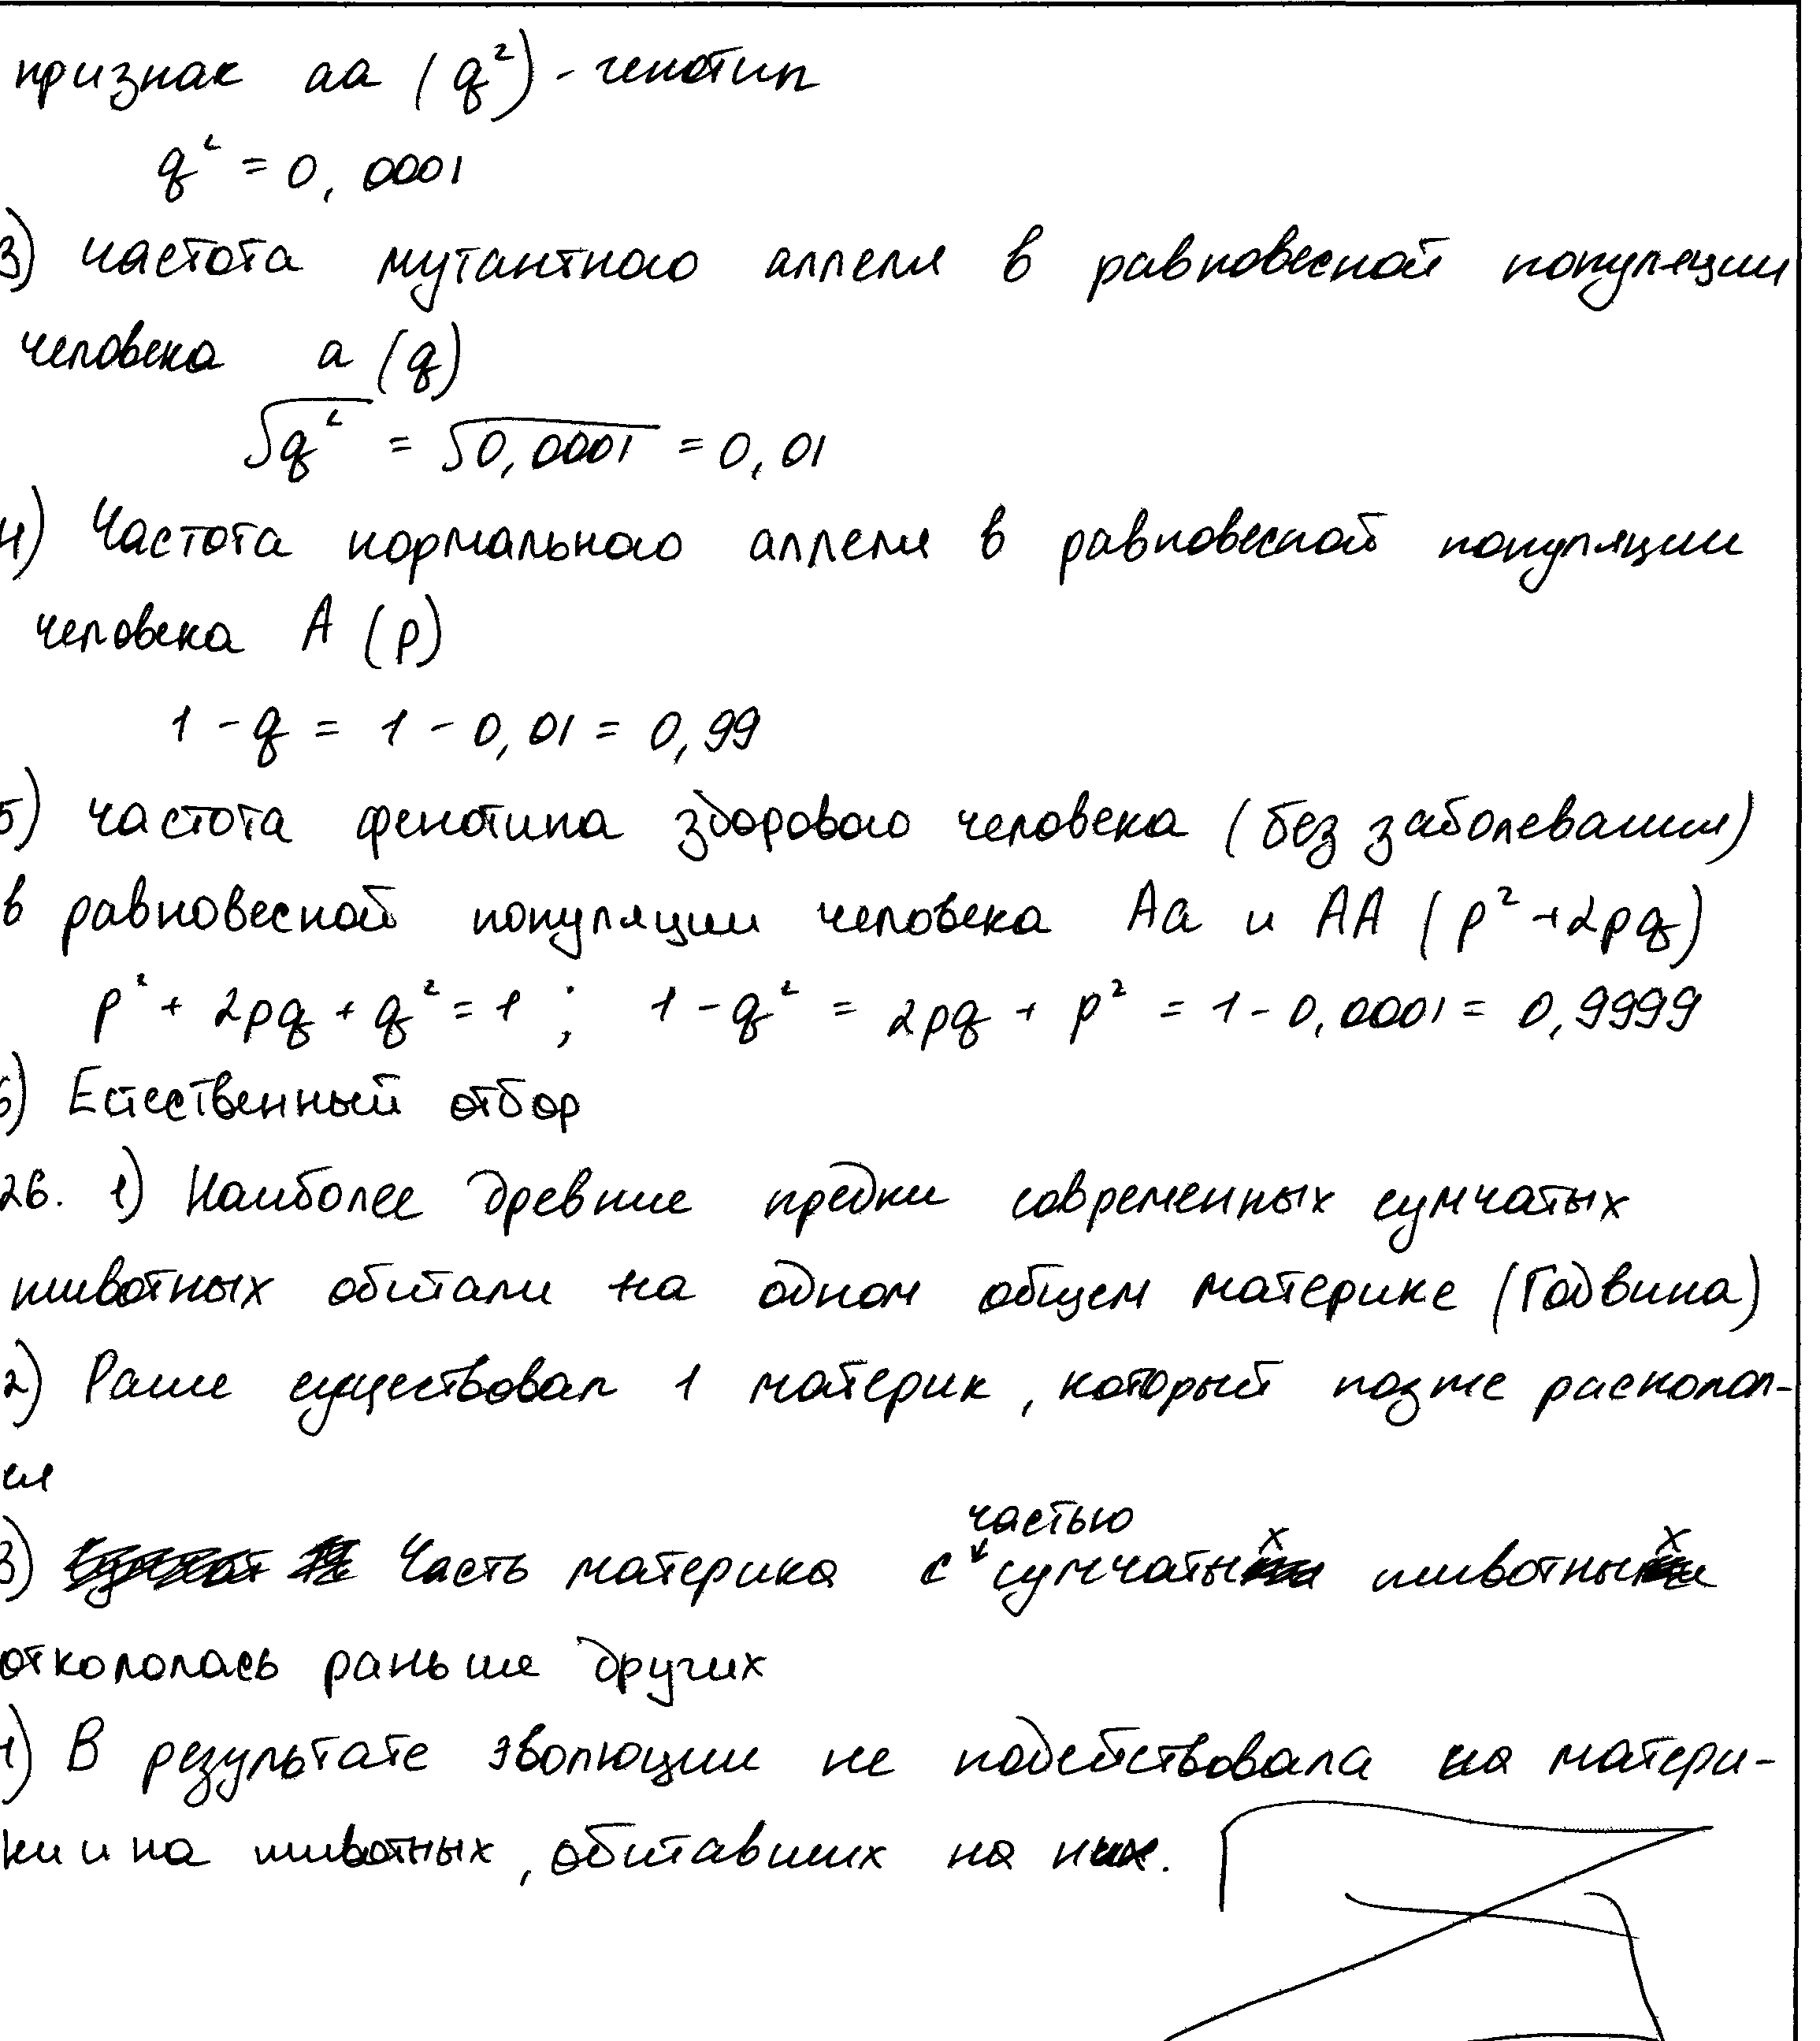 признак аа (q²) - генотип
q² = 0,0001
3) частота мутантного аллеля в равновесной популяции
человека а (q)
√q² = √0,0001 = 0,01
4) Частота нормального аллеля в равновесной популяции
человека А (р)
1 - q = 1 - 0,01 = 0,99
5) частота фенотипа здорового человека (без заболевания)
в равновесной популяции человека Аа и АА (p² + 2pq)
p² + 2pq + q² = 1 ; 1 - q² = 2pq + p² = 1 - 0,0001 = 0,9999
6) Естественный отбор
26. 1) Наиболее древние предки современных сумчатых
животных обитали на одном общем материке (Годвина)
2) Ранее существовал 1 материк, который позже расколол-
ся
3) Часть материка с частью сумчатых животных
откололась раньше других
4) В результате эволюции не подействовала на матери-
ки и на животных, обитавших на них.